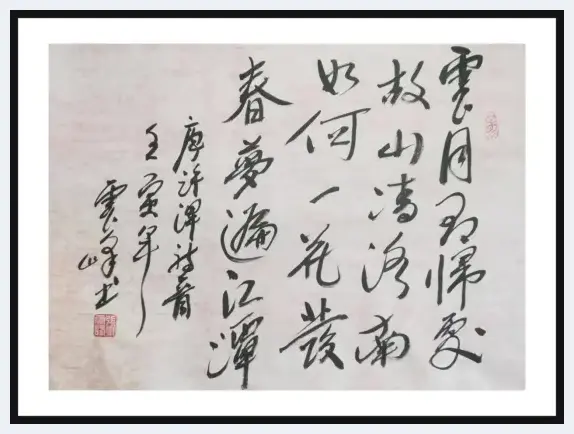 雲月有歸處
故山清洛南
如何一花發
春夢遍江潭
唐許渾詩首
壬寅年
雲峰書